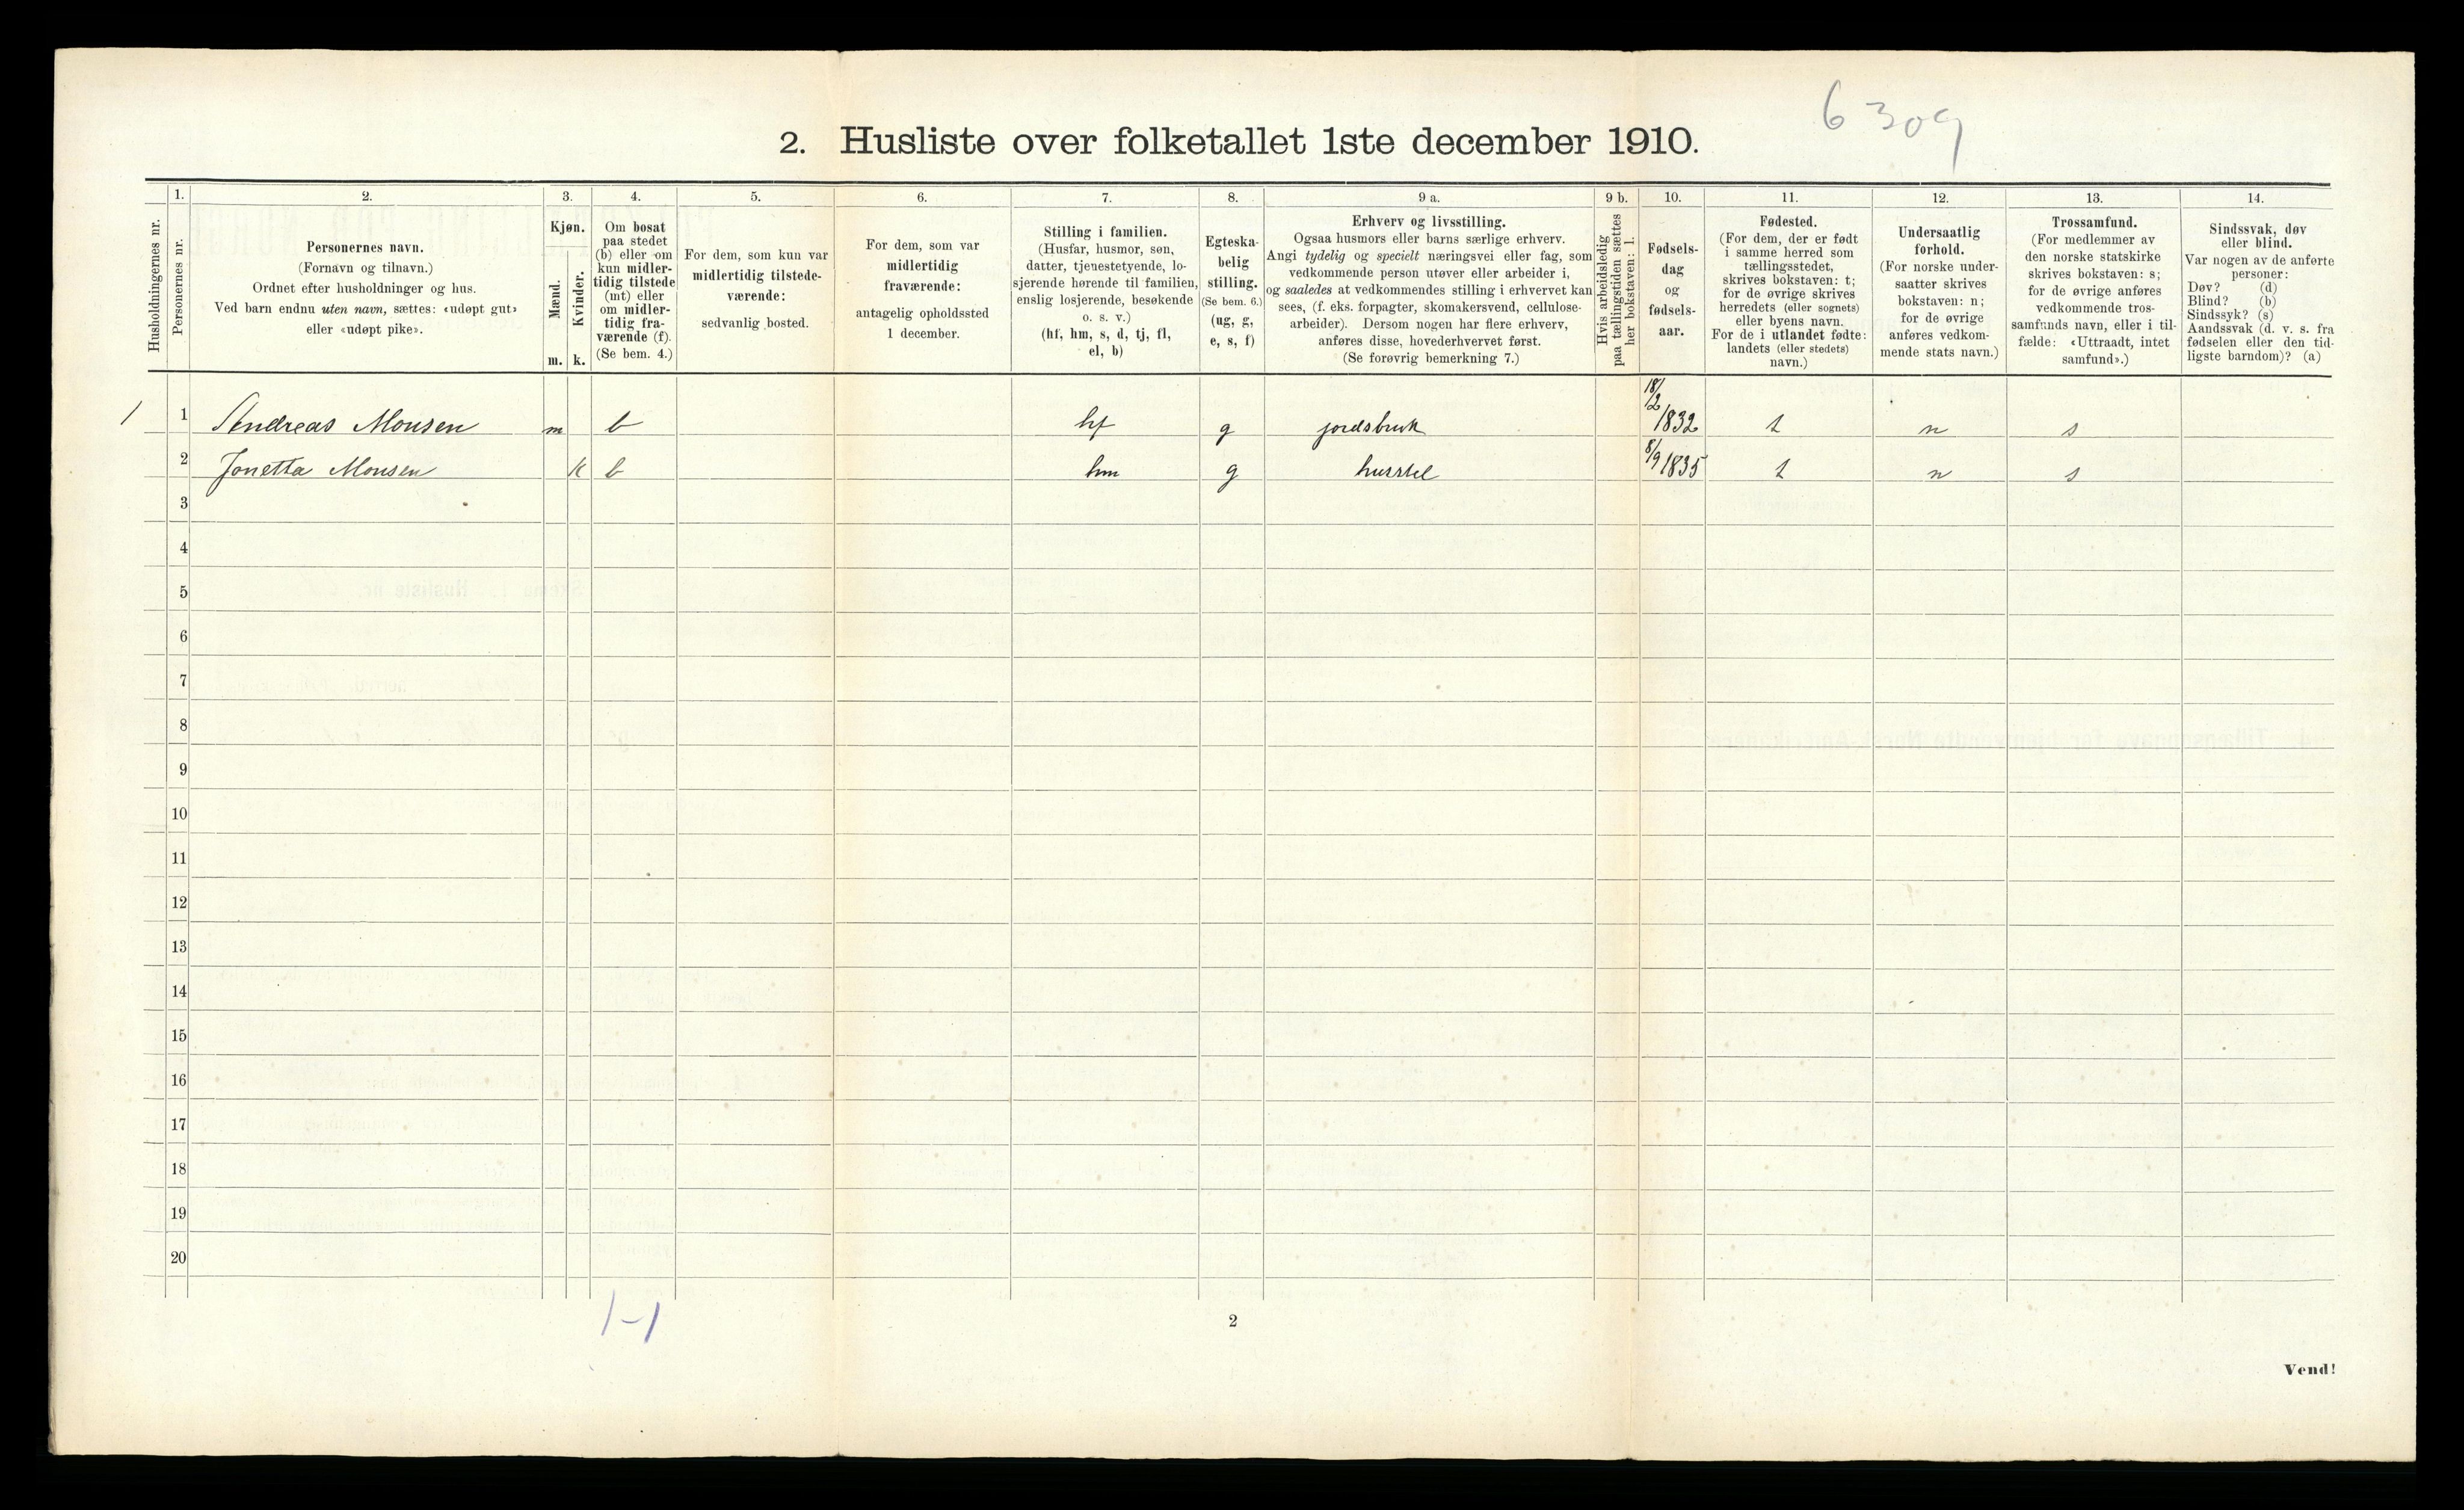 6309
2. Husliste over folketallet 1ste december 1910.
1. 2. 3. 4. 5. 6. 7. 8. 9 a. 9 b. 10. 11. 12. 13. 14.
Husholdningernes nr.
Personernes nr.
Personernes navn.
(Fornavn og tilnavn.)
Ordnet efter husholdninger og hus.
Ved barn endnu uten navn, sættes: «udøpt gut»
eller «udøpt pike».
Kjøn.
Mænd.
Kvinder.
m. k.
Om bosat
paa stedet
(b) eller om
kun midler-
tidig tilstede
(mt) eller
om midler-
tidig fra-
værende (f).
(Se bem. 4.)
For dem, som kun var
midlertidig tilstede-
værende:
sedvanlig bosted.
For dem, som var
midlertidig
fraværende:
antagelig opholdssted
1 december.
Stilling i familien.
(Husfar, husmor, søn,
datter, tjenestetyende, lo-
sjerende hørende til familien,
enslig losjerende, besøkende
o. s. v.)
(hf, hm, s, d, tj, fl,
el, b)
Egteska-
belig
stilling.
(Se bem. 6.)
(ug, g,
e, s, f)
Erhverv og livsstilling.
Ogsaa husmors eller barns særlige erhverv.
Angi tydelig og specielt næringsvei eller fag, som
vedkommende person utøver eller arbeider i,
og saaledes at vedkommendes stilling i erhvervet kan
sees, (f. eks. forpagter, skomakersvend, cellulose-
arbeider). Dersom nogen har flere erhverv,
anføres disse, hovederhvervet først.
(Se forøvrig bemerkning 7.)
Hvis arbeidsledig
paa tællingstiden sættes
her bokstaven: l.
Fødsels-
dag
og
fødsels-
aar.
Fødested.
(For dem, der er født
i samme herred som
tællingsstedet,
skrives bokstaven: t;
for de øvrige skrives
herredets (eller sognets)
eller byens navn.
For de i utlandet fødte:
landets (eller stedets)
navn.)
Undersaatlig
forhold.
(For norske under-
saatter skrives
bokstaven: n;
for de øvrige
anføres vedkom-
mende stats navn.)
Trossamfund.
(For medlemmer av
den norske statskirke
skrives bokstaven: s;
for de øvrige anføres
vedkommende tros-
samfunds navn, eller i til-
fælde: «Uttraadt, intet
samfund».)
Sindssvak, døv
eller blind.
Var nogen av de anførte
personer:
Døv? (d)
Blind? (b)
Sindssyk? (s)
Aandssvak (d. v. s. fra
fødselen eller den tid-
ligste barndom)? (a)
1 1 Andreas Monsen m b hf g jordsbruk 18/2 1832 t n s
2 Jonetta Monsen k b hm g husstel 8/9 1835 t n s
3
4
5
6
7
8
9
10
11
12
13
14
15
16
17
18
19
20
1-1
2
Vend!